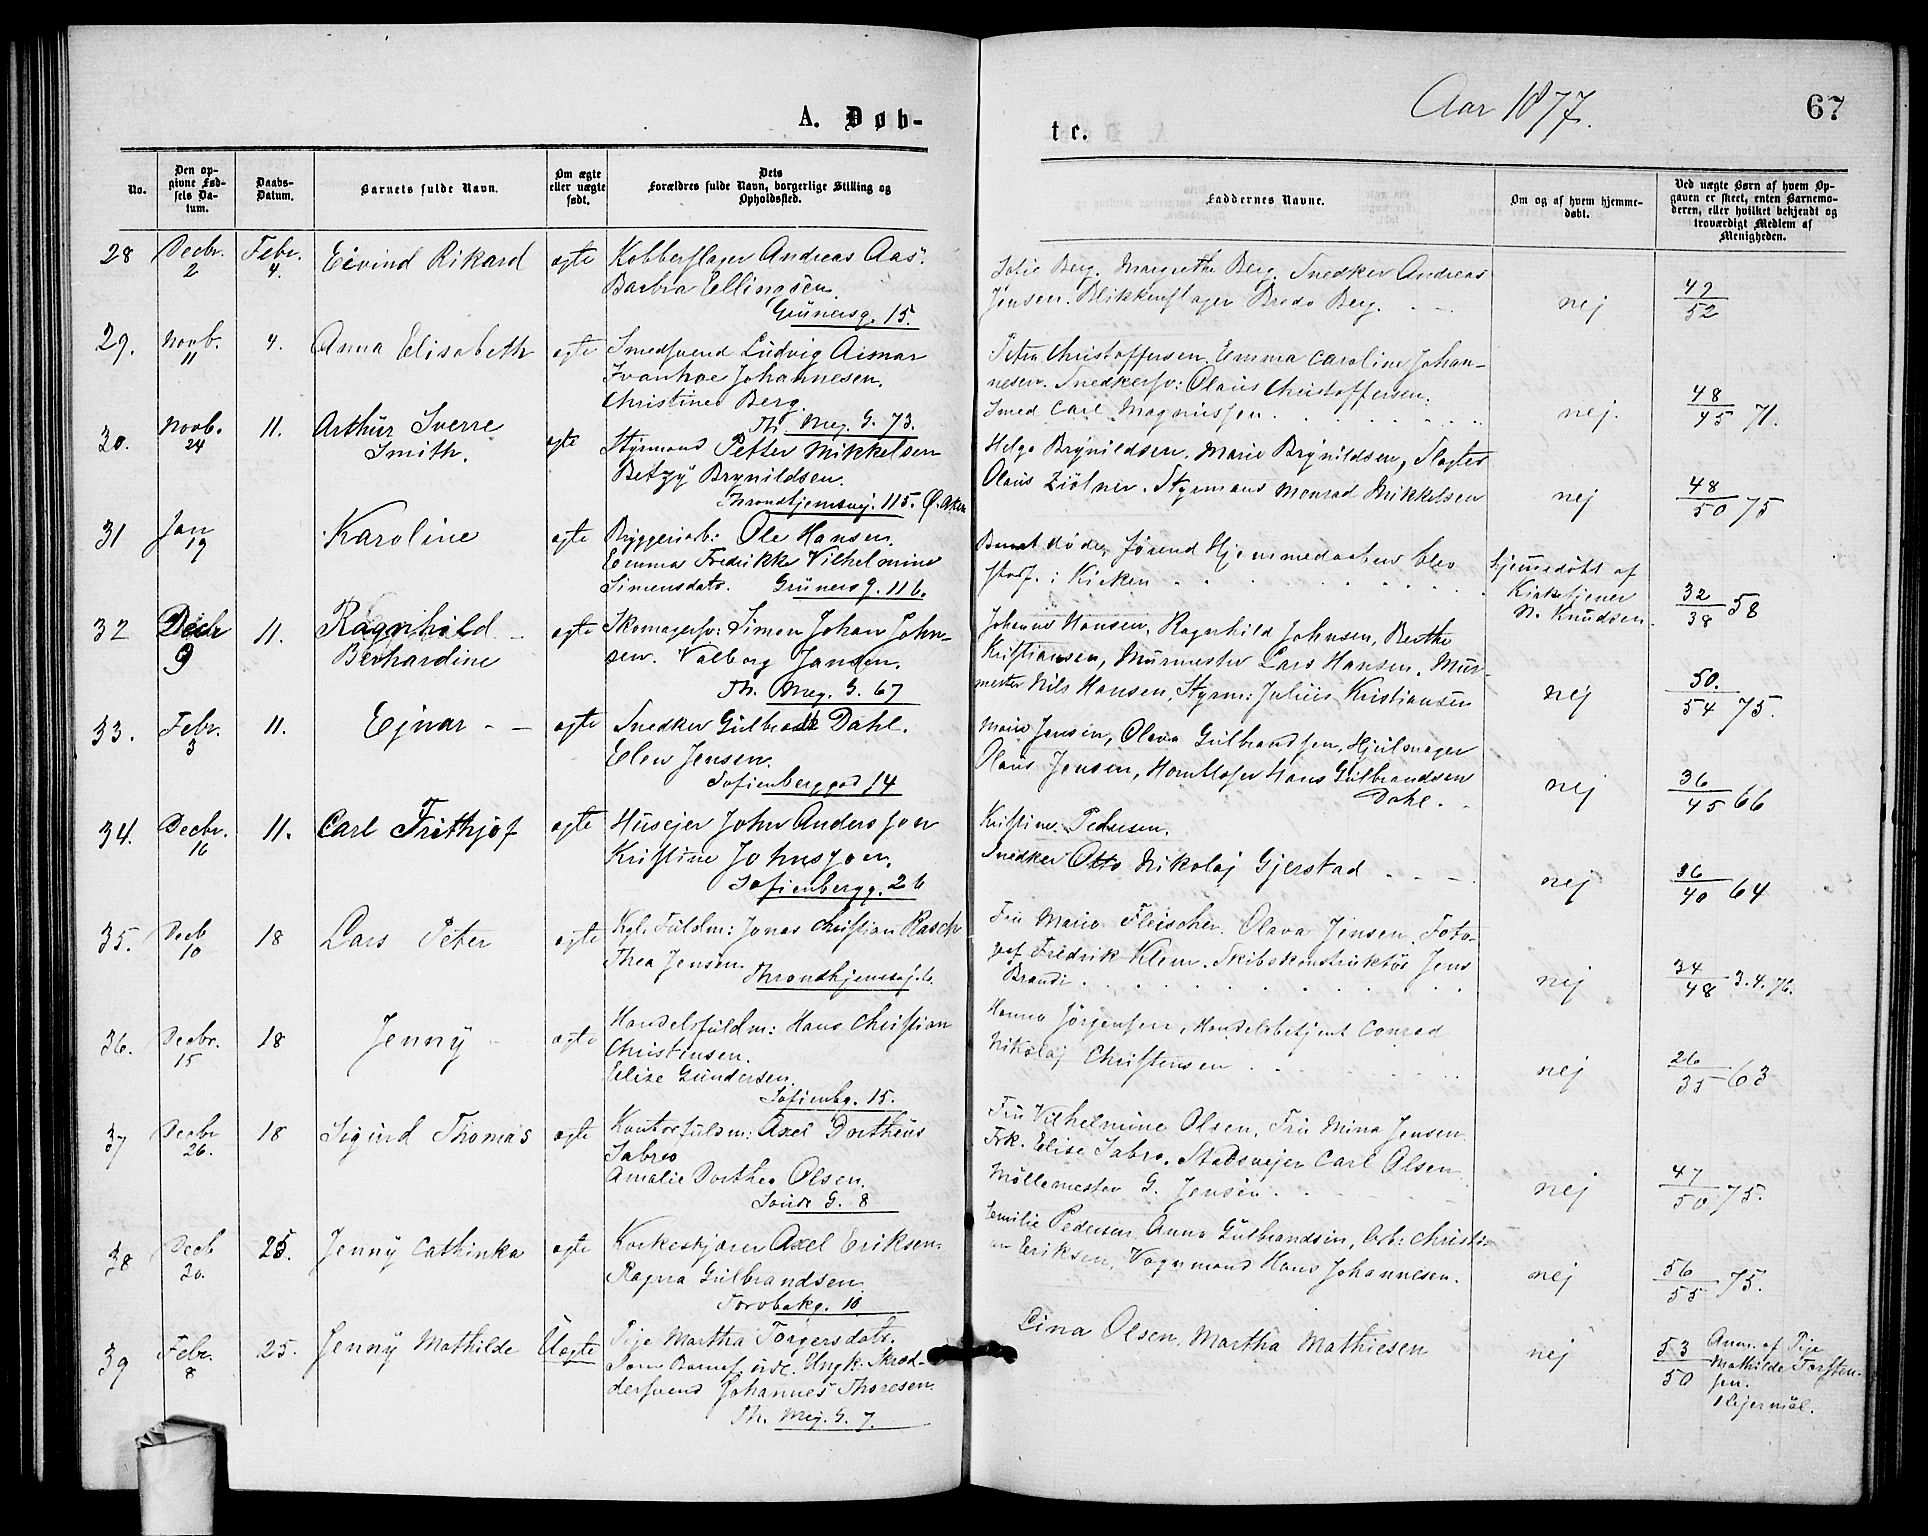 A. Døb-
te.
Aar 1877.
67
No.
Den op-
givne Fød-
sels Da-
tum.
Daabs-
Datum.
Barnets fulde Navn.
Om ægte
eller uægte
født.
Dets
Forældres fulde Navn, borgerlige Stilling og
Opholdssted.
Faddernes Navne.
Om og af hvem hjemme-
døbt.
Ved uægte Børn af hvem Op-
gaven er skeet, enten Barnemo-
deren, eller hvilket bekjendt og
troværdigt Medlem af
Menigheden.
28 Decbr. 2 Febr. 4. Eivind Rikard ægte Kobberslager Andreas Aas.
Barbra Ellingsen.
Grünersg. 15.
Sofie Berg. Margrethe Berg. Snedker Andreas
Jensen. Blikkenslager Bredo Berg.
nej
49/52
29. Novb. 11 4. Anna Elisabeth ægte Smedsvend Ludvig Aismar
Ivanhoe Johannesen.
Christine Berg.
Th. Mey. G. 73.
Petra Christoffersen. Emma Caroline Johan-
nesen. Snedkersv: Olaus Christoffersen.
Smed Carl Magnussen.
nej.
48/45 71.
30. Novb. 24 11. Arthur Sverre
Smith. ægte Styrmand Petter Mikkelsen
Betzy Brynildsen.
Throndhjemsvej. 115. Ø. Aker
Helga Brynildsen. Marie Brynildsen, Slagter
Olaus Ziølner. Styrmand Monrad Mikkelsen
nej
48/50 75
31 Jan 19 Karoline ægte Bryggeriarb: Ole Hansen.
Emma Fredrikke Vilhelmine
Simensdatr. Grünersg. 116.
Barnet døde, førend Hjemmedaaben blev
stadf. i Kirken
hjemmedøbt af
Kirketjener
N. Knudsen.
32/38 58
32 Decbr 9 11. Ragnhild
Berhardine ægte Skomagersv: Simon Johan John-
sen. Valborg Jansen.
Th. Mey. G. 67
Johanne Hansen, Ragnhild Johnsen, Berthe
Kristiansen, Murmester Lars Hansen. Mur-
mester Nils Hansen, Styrm: Julius Kristiansen
nej
50./54 75.
33. Febr. 3 11. Ejnar ægte Snedker Gulbrand Dahl.
Elen Jensen.
Sofienberggad 14
Marie Jensen, Olava Gulbrandsen, Hjulmager
Olaus Jensen, Hans Gulbrandsen
Dahl.
nej
36/45 66
34. Decbr. 16 11. Carl Frithjof ægte Husejer John Andersson
Kristine Johnsson.
Sofienbergg. 26
Kristine Pedersen.
Snedker Otto Nikolaj Gjerstad
nej
36/40 64
35. Decb 10 18 Lars Peter ægte Kgl. Fuldm: Jonas Christian Rasch
Thea Jensen
Fru Marie Fleischer. Olava Jensen. Foto-
graf Fredrik Klem. Skibskonstruktør Jens
Brandt.
nej
34/48 3.4.76.
36. Decbr. 15 18 Jenny ægte Handelsfuldm: Hans Christian
Christensen.
Elise Gundersen
Sofienbg. 15.
Hanna Jørgensen, Handelsbetjent Conrad
Nikolaj Christensen
nej
26/35 63
37 Decbr 26. 18 Sigurd Thomas ægte Kontorfuldm: Axel Dortheus
Sabro
Amalie Dorthea Olsen.
G. 8
Fru Vilhelmine Olsen, Fru Mina Jensen
Frk. Elise Sabro. Stadsvejer Carl Olsen
Møllemester G. Jensen.
nej
47/50 75.
38 Decb 30. 25. Jenny Cathinka ægte Korkeskjærer Axel Eriksen.
Ragna Gulbrandsen.
Torvbakg. 10
Emilie Pedersen, Anna Gulbrandsen, Arb: Christi-
an Eriksen, Vognmand Hans Johannesen.
nej
56/55 75.
39 Febr. 8 25. Jenny Mathilde Uægte Pige Martha Torgersdatr.
som Barnef. udl. Ungk. Skræd-
dersvend Johannes Thoresen
Th. Mey. G. 7.
Lina Olsen. Martha Mathiesen
nej
53/50
Anm. af Pige
Mathilde Torsten-
sen.